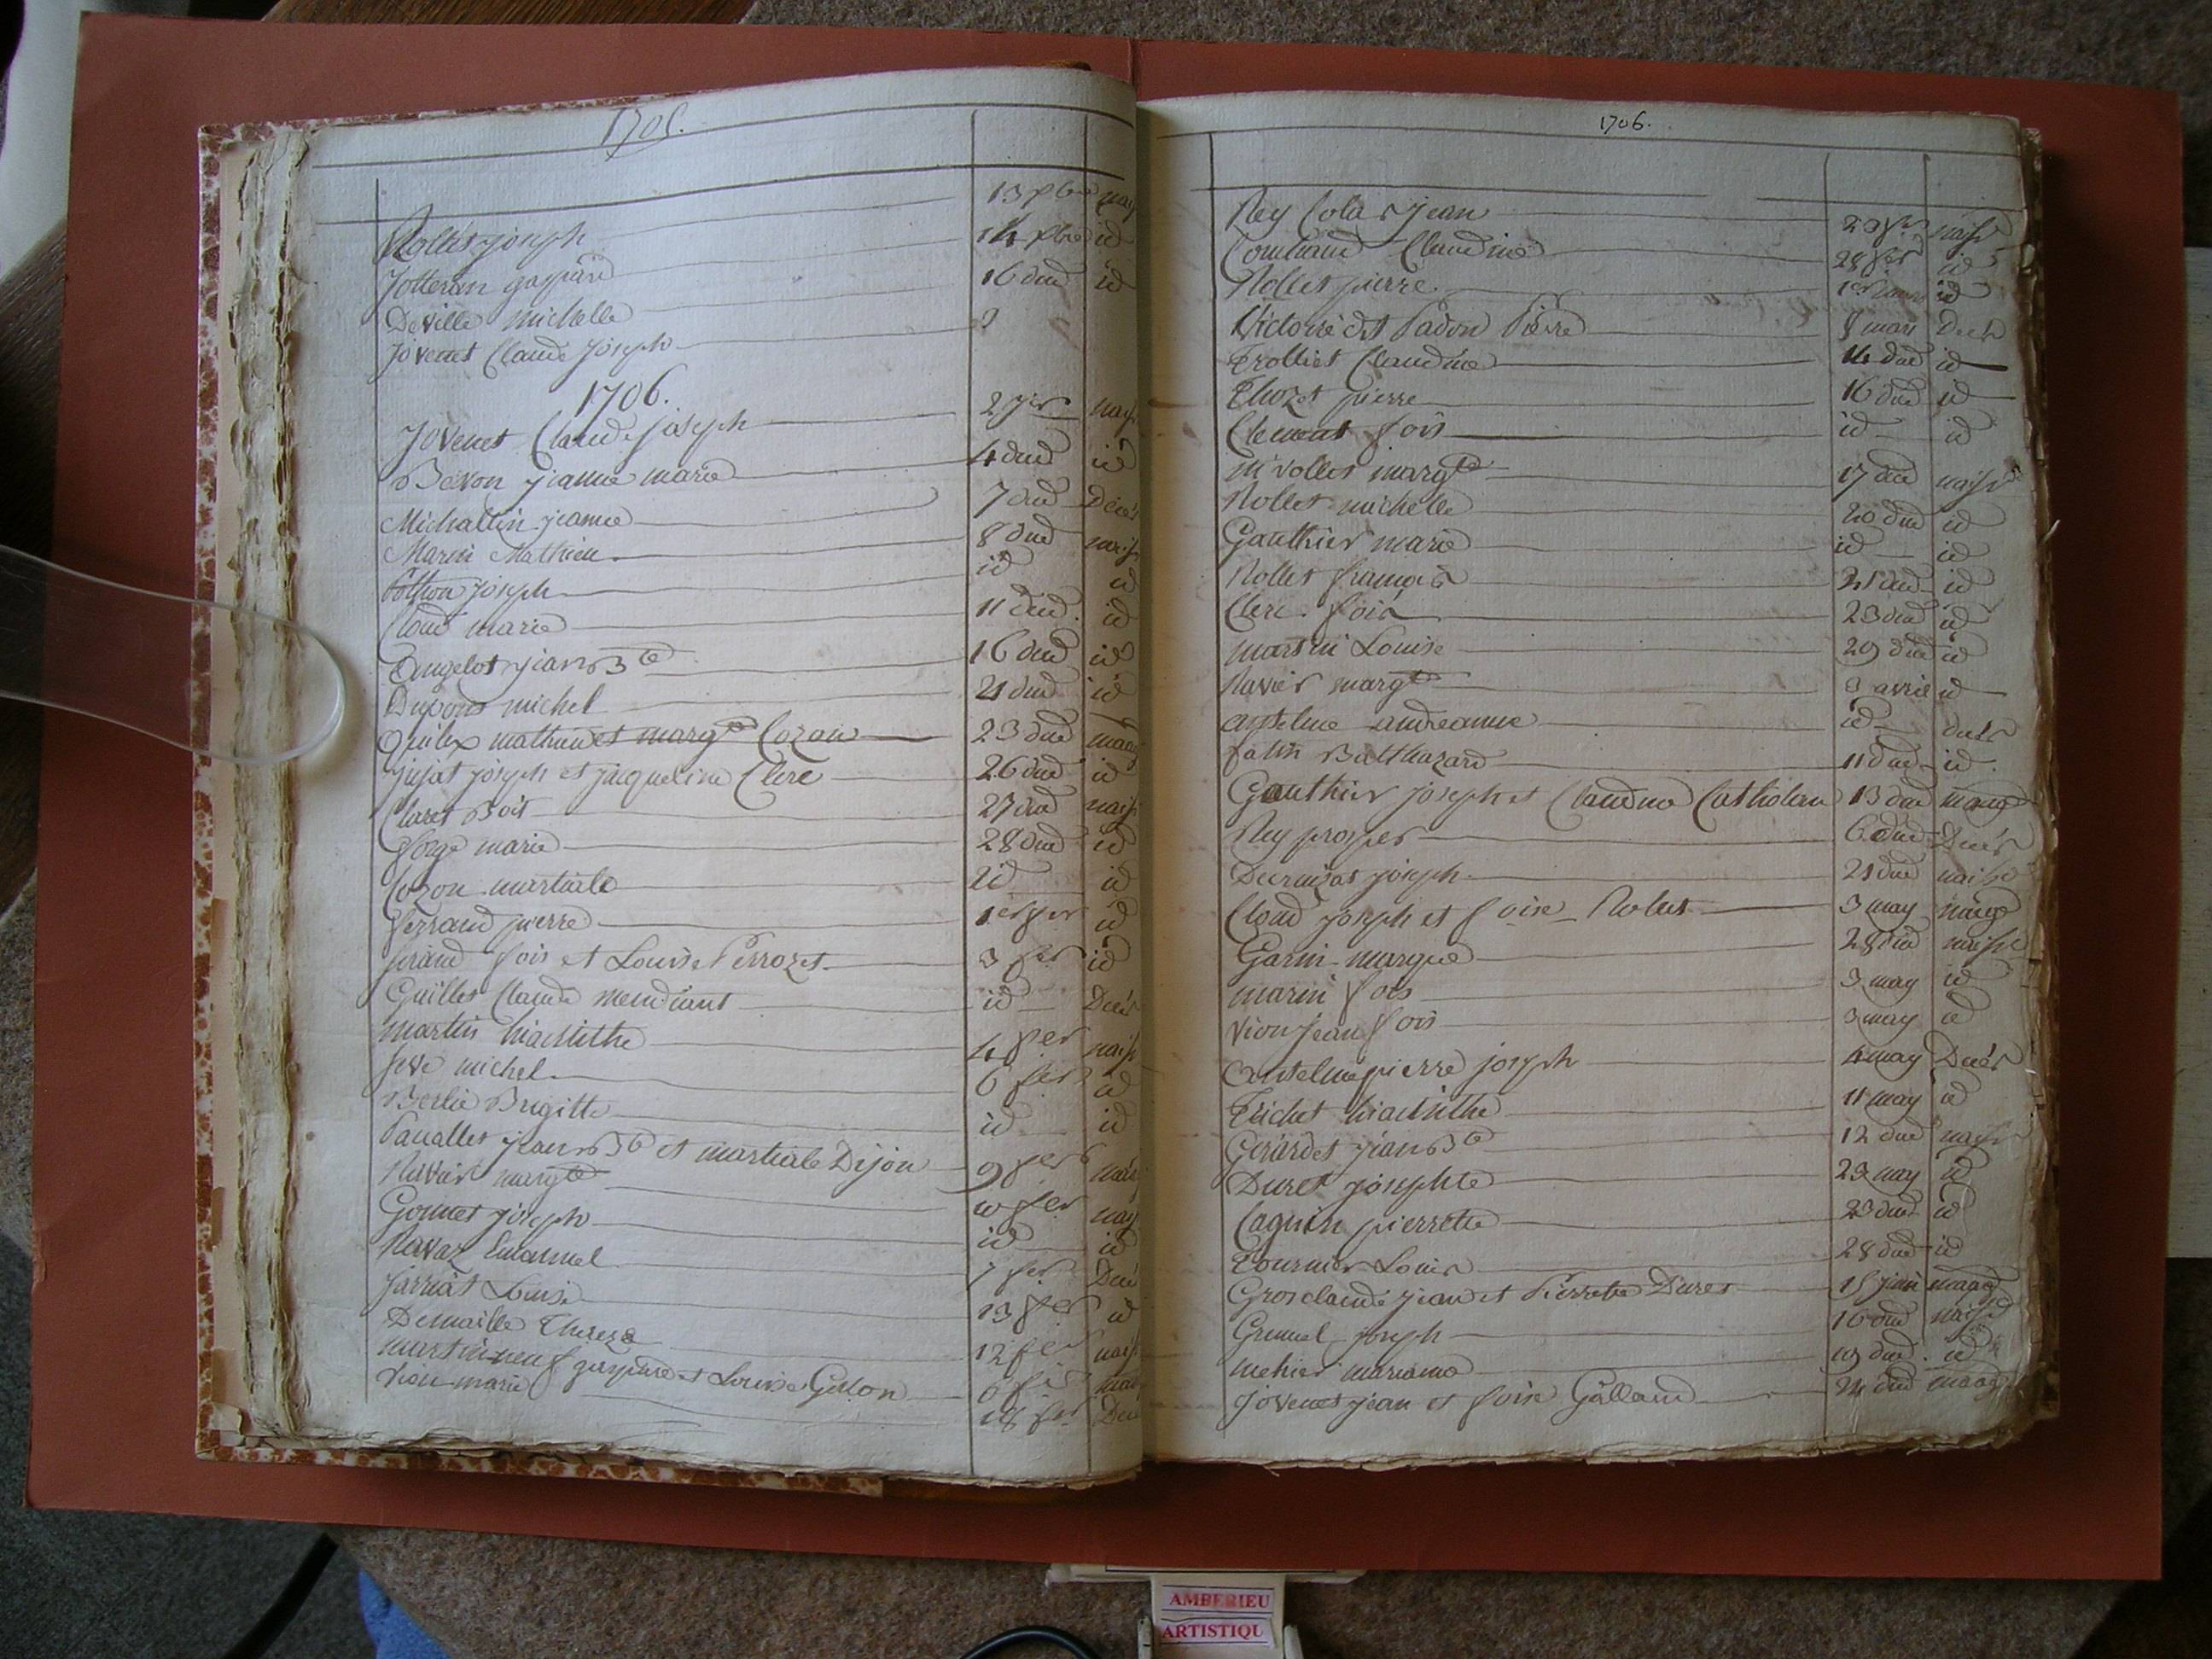 1705.
Rollet joseph 14 xbre id
Jotteran gaspard 16 dud id
Deville michelle
Jovenet Claude Joseph
1706.
Jovenet Claude joseph 2 jer naiss
Bévon jeanne marie 4 dud id
Michallin jeanne 7 dud Décès
Marin Mathieu 8 dud naiss
Cotton joseph id id
Cloud marie 11 dud id
Tangelot jean Bte 16 dud id
Dupont michel 21 dud id
Guilex mathieu et margte Cozon 23 dud maag
jujat joseph et jacqueline Clerc 26 dud id
Claret Boit 27 dud naiss
forge marie 28 dud id
Cozon martiale id id
ferrand pierre 1er fer id
girand fois et Louise Perrozet 3 fer id
Guilles Claude mendiant id Décès
martin hiacinthe 4 fer naiss
seve michel 6 fer id
Berlie Brigitte id id
Panallet jean Bte et martiale Dijon 9 fer
Ravier margte 10 fer
Gonnet joseph id id
Ravaz Emanuel 7 fer Décè
jarriat Louise 13 fer id
Demaille Thereze 12 fer naiss
martin neuf gaspard et Louise Guson 6 fer
Vion marie 18 fer Dec
1706.
Rey Colas jean naiss
Coutaud Claudine 28 fer id
Rollet pierre id
Victoire dit Padon Pierre 8 mars Décès
Trolliet Claudine 14 dud id
Thozet pierre 16 dud id
Clement fois id id
nivollet margte 17 dud naiss
Rollet michelle 20 dud id
Gauthier marie id id
Rollet françois 21 dud id
Clerc fois 23 dud id
martin Louise 29 dud id
Ravier margte 3 avril id
antelme andreanne id Décès
falin Balthazard 11 dud id
Gauthier joseph et Claudine Catholan 13 dud maag
Rey prosper 6 dud Décès
Decruzat joseph 21 dud naiss
Cloud joseph et foise Rolet 3 may maag
Garin margue 28 dud naiss
marin fois 3 may id
Vion jean fois 3 may id
antelme pierre joseph 4 may Décès
Trichet hiacinthe 11 may id
Gerardet jean Bte 12 dud naiss
Duret josephte 23 may id
Cagnin pierrette 23 dud id
Tournier Louis 28 dud id
Grosclaude jean et Pierrette Duret 15 juin maag
Grumel joseph 16 dud naiss
mehier marianne 19 dud id
Jovenet jean et foise Galland 24 dud maag
AMBERIEU
ARTISTIQU